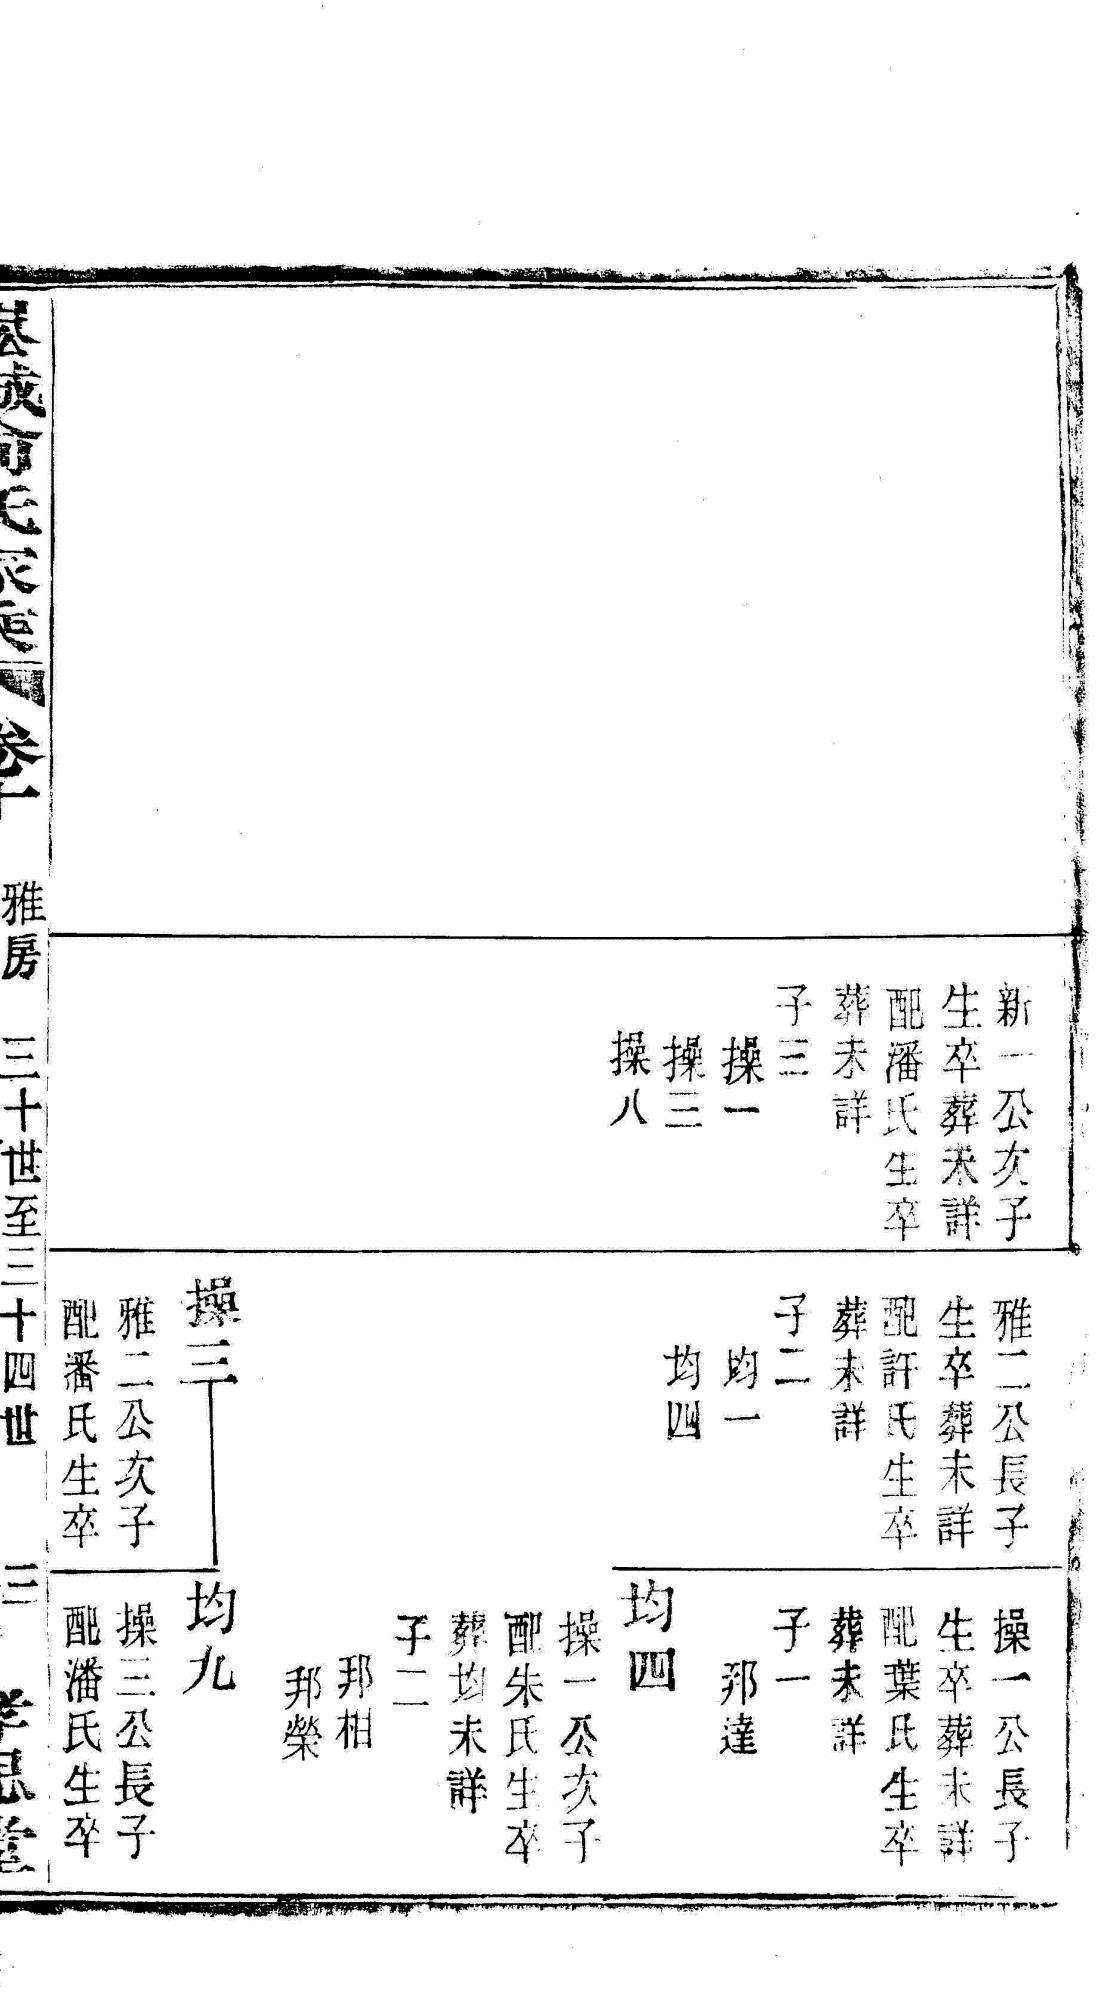 新一公次子
生卒葬未詳
配潘氏生卒
葬未詳
子三
操一
操三
操八
雅二公長子
生卒葬未詳
配許氏生卒
葬未詳
子二
均一
均四
操三
雅二公次子
配潘氏生卒
操一公長子
生卒葬未詳
配葉氏生卒
葬未詳
子一
邦達
均四
操一公次子
配朱氏生卒
葬均未詳
子二
邦相
邦榮
均九
操三公長子
配潘氏生卒
俞氏家乘 卷十 雅房 三十世至三十四世 三 孝思堂